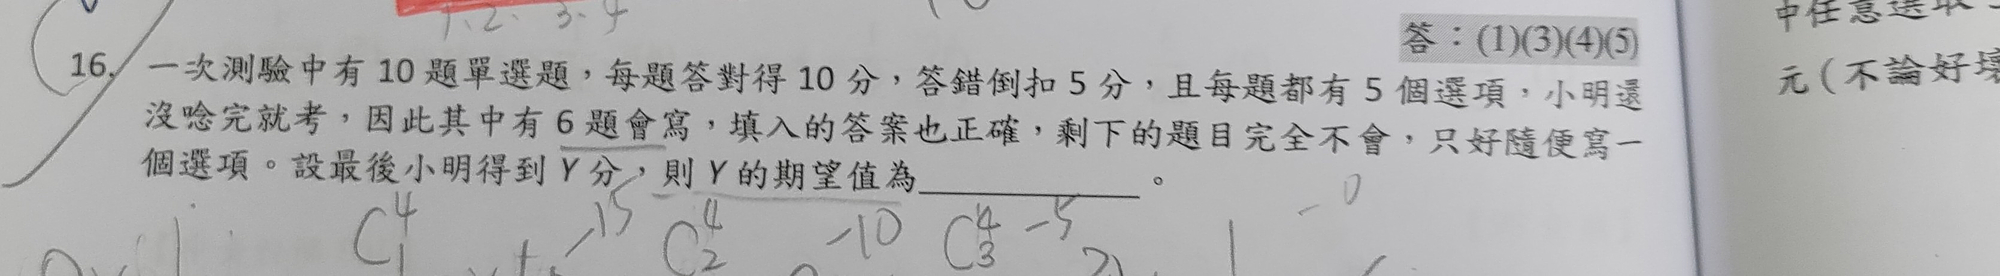 1、2、3、4
答：(1)(3)(4)(5)
16. 一次測驗中有 10 題單選題，每題答對得 10 分，答錯倒扣 5 分，且每題都有 5 個選項，小明還
沒唸完就考，因此其中有 6 題會寫，填入的答案也正確，剩下的題目完全不會，只好隨便寫一
個選項。設最後小明得到 Y 分，則 Y 的期望值為＿＿＿＿＿＿。
C⁴₁ -15 C⁴₂ -10 C⁴₃ -5 -0
中任意選取
元（不論好壞